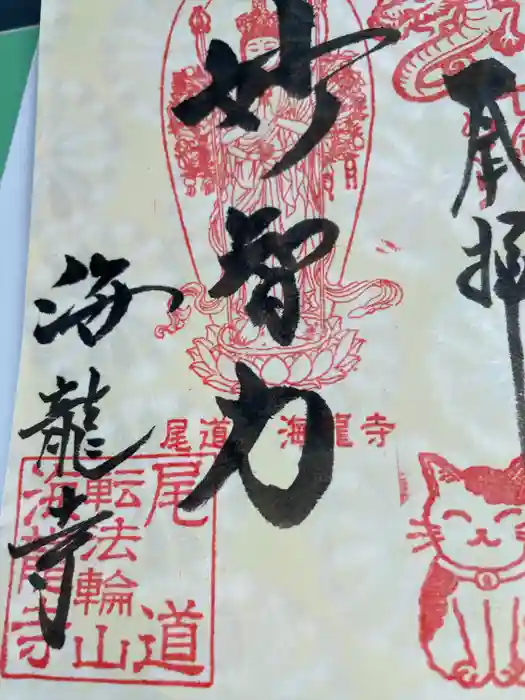 奉拝
妙智力
尾道 海龍寺
海龍寺
尾道
転法輪山
海龍寺